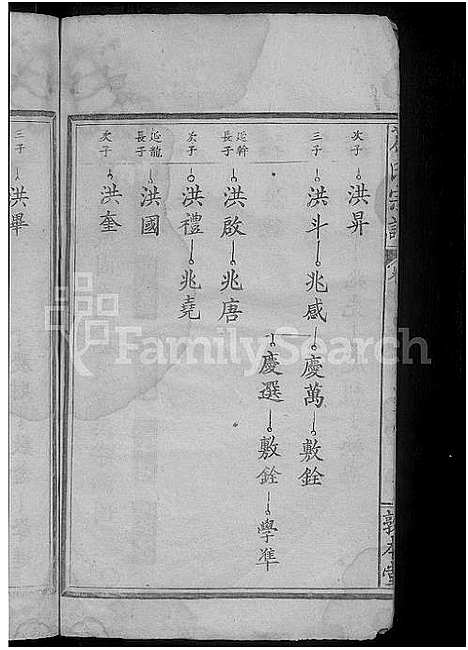 次子 洪昇
三子 洪斗 兆感 慶萬 敷銓
慶選 敷銓 學準
延幹長子 洪啟 兆唐
次子 洪禮 兆堯
延龍長子 洪國
次子 洪奎
三子 洪畢
氏宗譜
敦本堂
FamilySearch